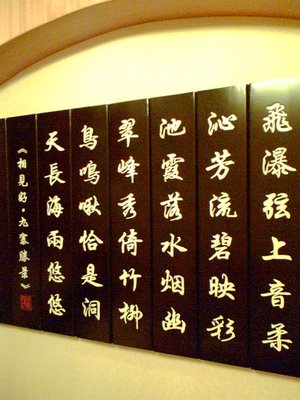 飛瀑弦上音柔
沁芳流碧映彩
池霞落水烟幽
翠峰秀倚竹柳
鳥鳴啾恰是洞
天長海雨悠悠
《相見好·九寨勝景》